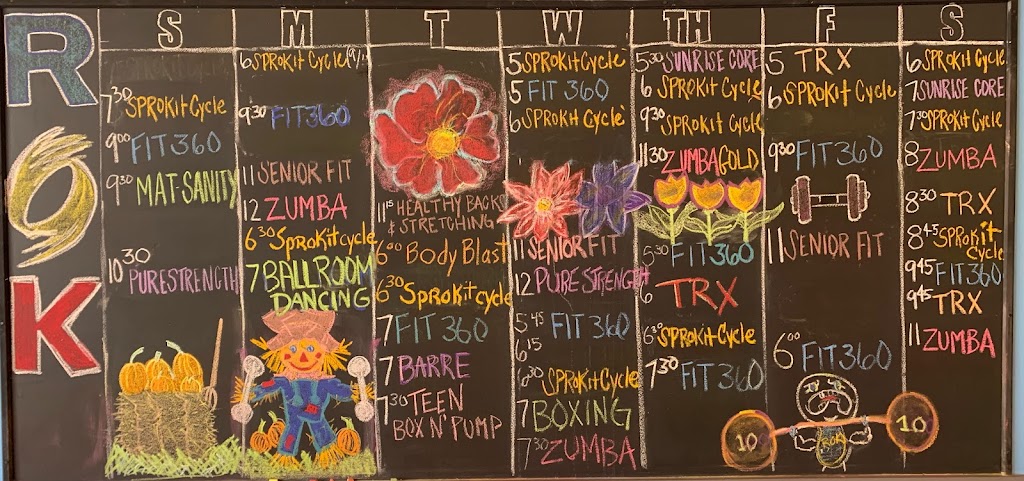 ROK
S
7:30 SPROKit Cycle
9:00 FIT 360
9:30 MAT-SANITY
10:30
PURESTRENGTH
M
6 SPROKit Cycle
9:30 FIT360
11 SENIOR FIT
12 ZUMBA
6:30 SPROKit cycle
7 BALLROOM
DANCING
T
11:15 HEALTHY BACK
& STRETCHING
6:00 Body Blast
6:30 SPROKit cycle
7 FIT 360
7 BARRE
7:30 TEEN
BOX N' PUMP
W
5 SPROKit Cycle
5 FIT 360
6 SPROKit Cycle
11 SENIOR FIT
12 PURE STRENGTH
5:45 FIT 360
6:15
6:30 SPROKit Cycle
7 BOXING
7:30 ZUMBA
TH
5:30 SUNRISE CORE
6 SPROKit Cycle
9:30 SPROKit Cycle
11:30 ZUMBA GOLD
5:30 FIT 360
6 TRX
6:30 SPROKit Cycle
7:30 FIT 360
F
5 TRX
6 SPROKit Cycle
9:30 FIT 360
11 SENIOR FIT
6:00 FIT 360
10
ROK
10
S
6 SPROKit Cycle
7 SUNRISE CORE
7:30 SPROKit Cycle
8 ZUMBA
8:30 TRX
8:45 SPROKit
cycle
9:45 FIT 360
9:45 TRX
11 ZUMBA